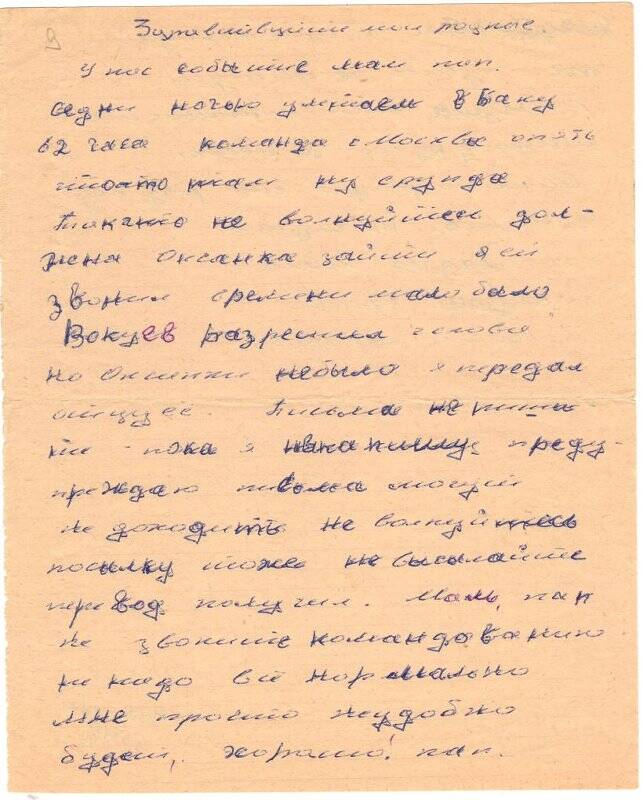 Здравствуйте мои родные
У нас событие мам пап.
седни ночью улетаем в Баку
в 2 часа команда с Москвы опять
чтото там ну ерунда.
Такчто не волнуйтесь дол-
жена Оксанка зайти я ей
звонил времени мало было
Вокуев разрешил
но Оксанки небыло я передал
отцу её. Письма не пиши-
те пока я ненапишу преду-
преждаю письма могут
не доходить не волнуйтесь
посылку тоже не высылайте
перевод получил. Мам, пап
не звоните командованию
не надо всё нормально
мне просто неудобно
будет, хорошо! пап.